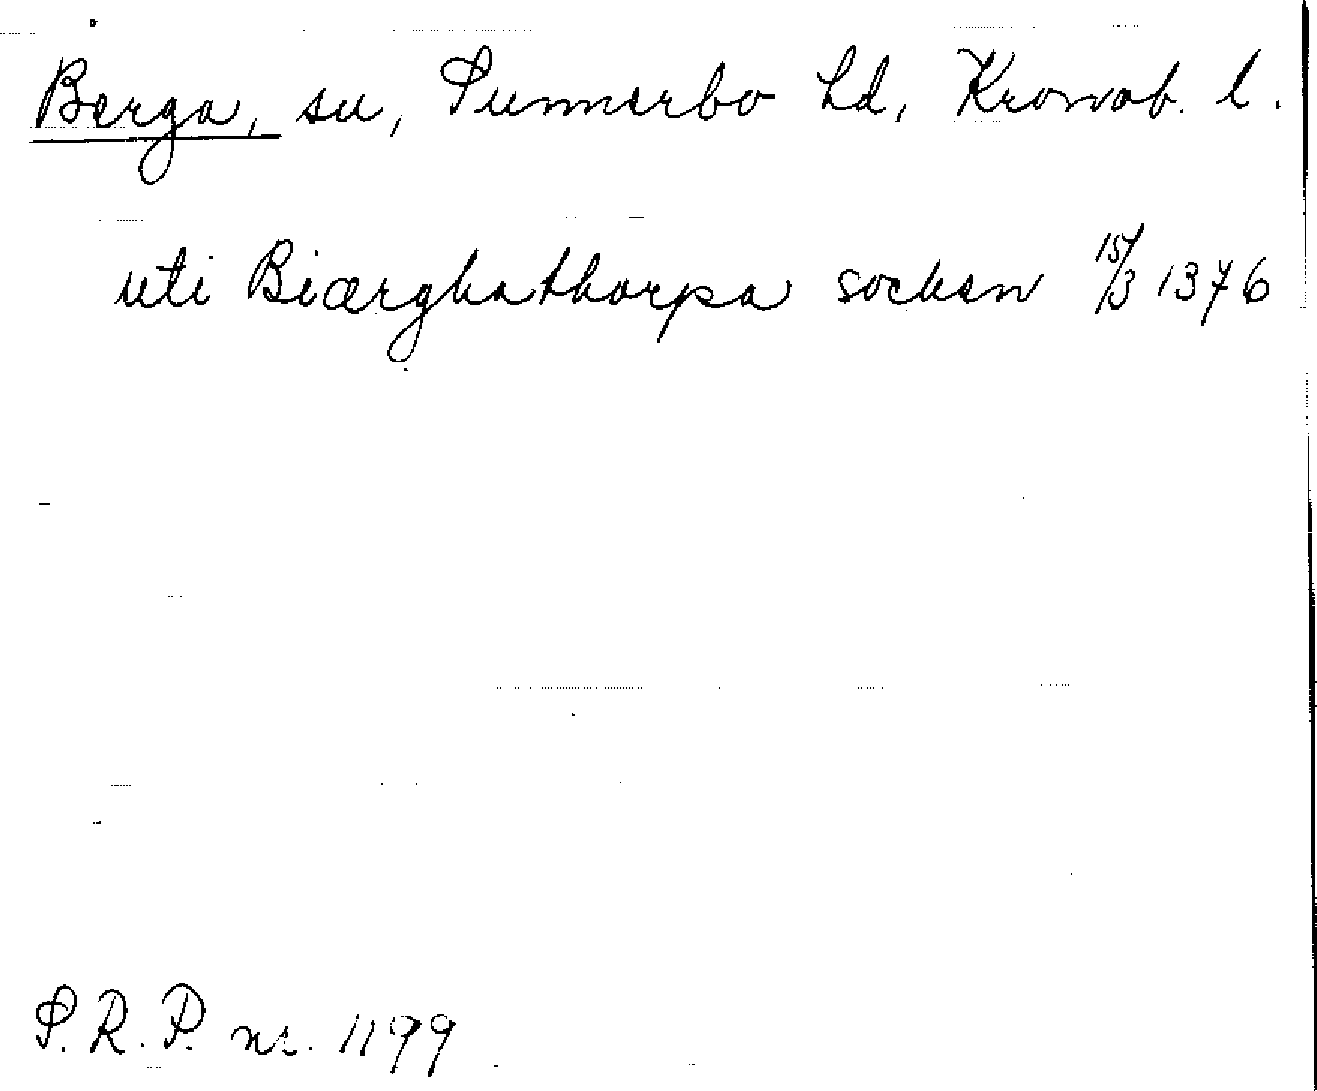 Berga, sn, Sunnerbo hd, Kronob. l.
uti Biærghathorpa socken 15/3 1376
S.R.P. nr. 1199